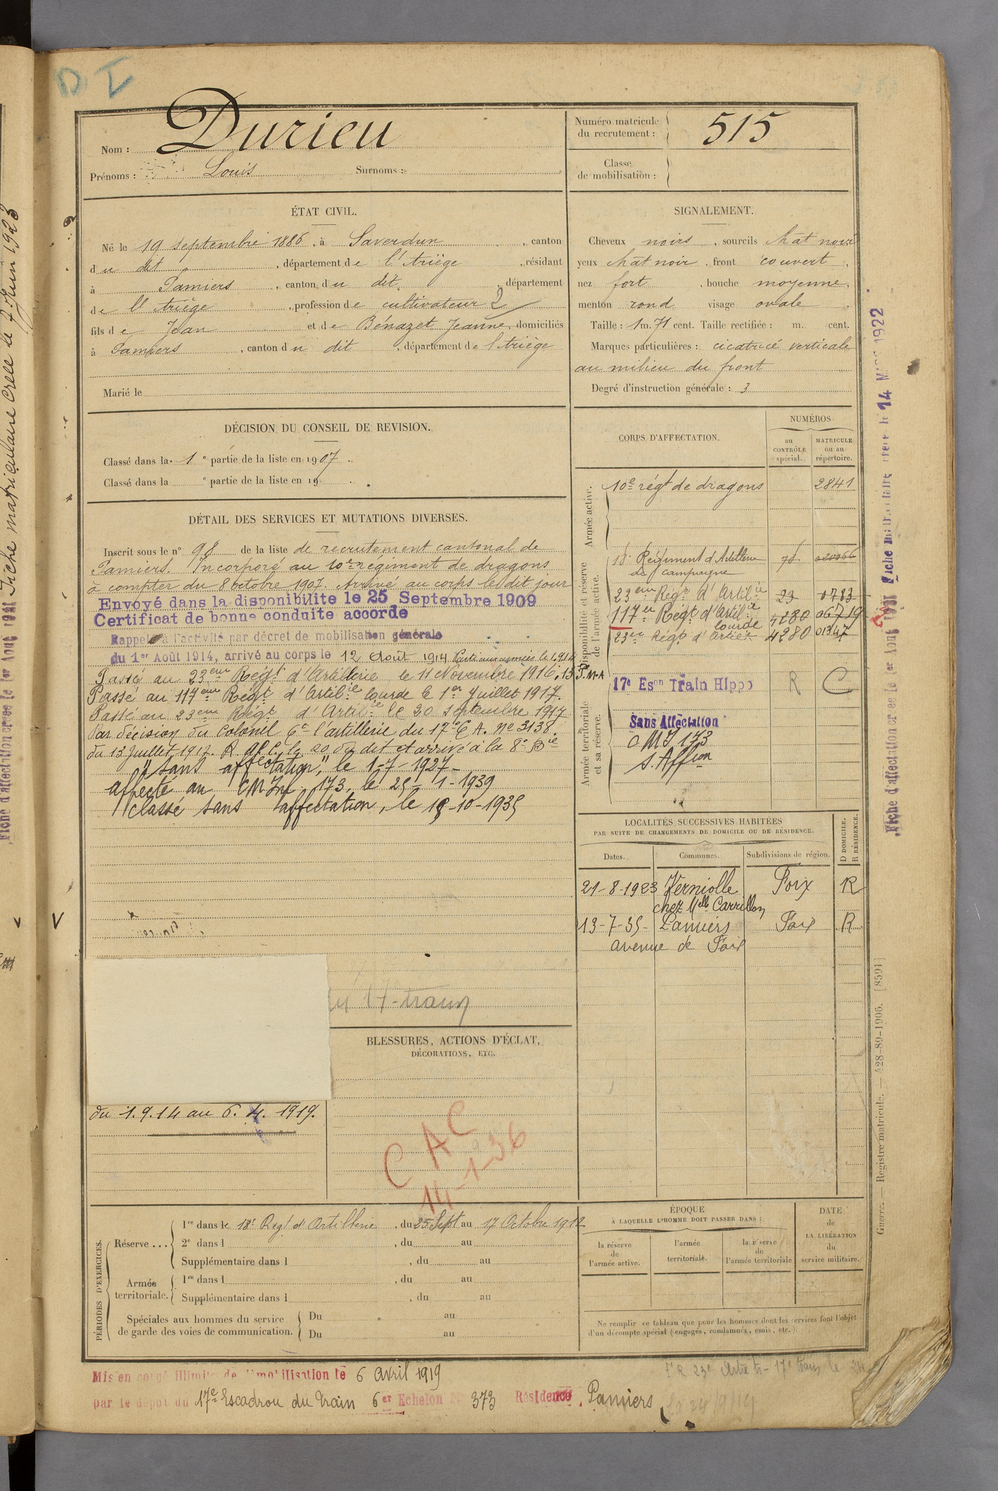 D I
Nom : Durieu
Prénoms : Louis Surnoms :
Numéro matricule
du recrutement : 515
Classe
de mobilisation :
ÉTAT CIVIL.
Né le 19 septembre 1886, à Saverdun, canton
du dit, département de l'Ariège, résidant
à Pamiers, canton du dit, département
de l'Ariège, profession de cultivateur 2
fils de Jean et de Bénazet Jeanne, domiciliés
à Pamiers, canton du dit, département de l'Ariège
Marié le
SIGNALEMENT.
Cheveux noirs, sourcils chat noir
yeux chat noir, front couvert,
nez fort, bouche moyenne,
menton rond visage ovale
Taille : 1 m. 71 cent. Taille rectifiée : m. cent.
Marques particulières : cicatrice verticale
au milieu du front
Degré d'instruction générale : 3
DÉCISION DU CONSEIL DE REVISION.
Classé dans la 1e partie de la liste en 1907.
Classé dans la e partie de la liste en 19
DÉTAIL DES SERVICES ET MUTATIONS DIVERSES.
Inscrit sous le n° 98 de la liste de recrutement cantonal de
Pamiers. Incorporé au 10e regiment de dragons
à compter du 8 octobre 1907. Arrivé au corps le dit jour
Envoyé dans la disponibilite le 25 Septembre 1909
Certificat de bonne conduite accorde
Rappelé à l'activité par décret de mobilisation générale
du 1er Août 1914, arrivé au corps le 12 Août 1914
Passé au 23eme Régt d'Artillerie le 11 Novembre 1916.
Passé au 117eme Régt d'Artilie lourde le 1er Juillet 1917.
Passé au 23eme Régt d'Artilie le 30 Septembre 1917
Par décision du Colonel Ct l'artillerie du 17e C.A. N° 3138.
du 13 Juillet 1917.
"Sans affectation", le 1-7-1927
affecté au CMI 173, le 25-1-1939
Classé sans affectation, le 15-10-1935
du 17-train
CORPS D'AFFECTATION.
NUMÉROS
au
CONTRÔLE
spécial.
MATRICULE
ou au
répertoire.
Armée active.
10e régt de dragons 2841
Disponibilité et réserve
de l'armée active.
18e Regiment d'Artillerie
de campagne
23eme Régt d'Artilie 23 0783
117e Regt d'Artilie lourde 4280 06719
23eme Régt d'Artie 4280 01347
Armée territoriale
et sa réserve.
17e Eson Train Hippo R C
Sans Affectation
CMI 173
S. Affion
LOCALITÉS SUCCESSIVES HABITÉES
PAR SUITE DE CHANGEMENTS DE DOMICILE OU DE RÉSIDENCE.
Dates. Communes. Subdivisions de région. D DOMICILE. R RÉSIDENCE.
21-8-1923 Verniolle Foix R
chez Melle Carrillon
13-7-35- Pamiers Foix R
avenue de Foix
BLESSURES, ACTIONS D'ÉCLAT,
DÉCORATIONS, ETC.
du 1.9.14 au 6.4.1919.
C A C
14-1-36
PÉRIODES D'EXERCICES.
Réserve ...
1re dans le 18e Régt d'Artillerie, du 25 Sept au 17 Octobre 1912
2e dans l , du au
Supplémentaire dans l , du au
Armée
territoriale.
1re dans l , du au
Supplémentaire dans l , du au
Spéciales aux hommes du service
de garde des voies de communication.
Du au
Du au
ÉPOQUE
À LAQUELLE L'HOMME DOIT PASSER DANS :
la réserve
de
l'armée active.
l'armée
territoriale.
la réserve
de
l'armée territoriale
DATE
de
LA LIBÉRATION
du
service militaire.
Ne remplir ce tableau que pour les hommes dont les services font l'objet
d'un décompte spécial (engagés, condamnés, omis, etc.).
Mis en congé illimité de démobilisation le 6 Avril 1919
par le dépôt du 17e Escadron du Train 6er Echelon N° 373 Résidence, Pamiers
Guerre. Registre matricule. — 428-89-1905. [8591]
Fiche matriculaire créée le 14 Mars 1922
Fiche d'affectation créée le 1er Août 1931
Fiche matriculaire créée le 7 Juin 1923
Fiche d'affectation créée le 1er Août 1931